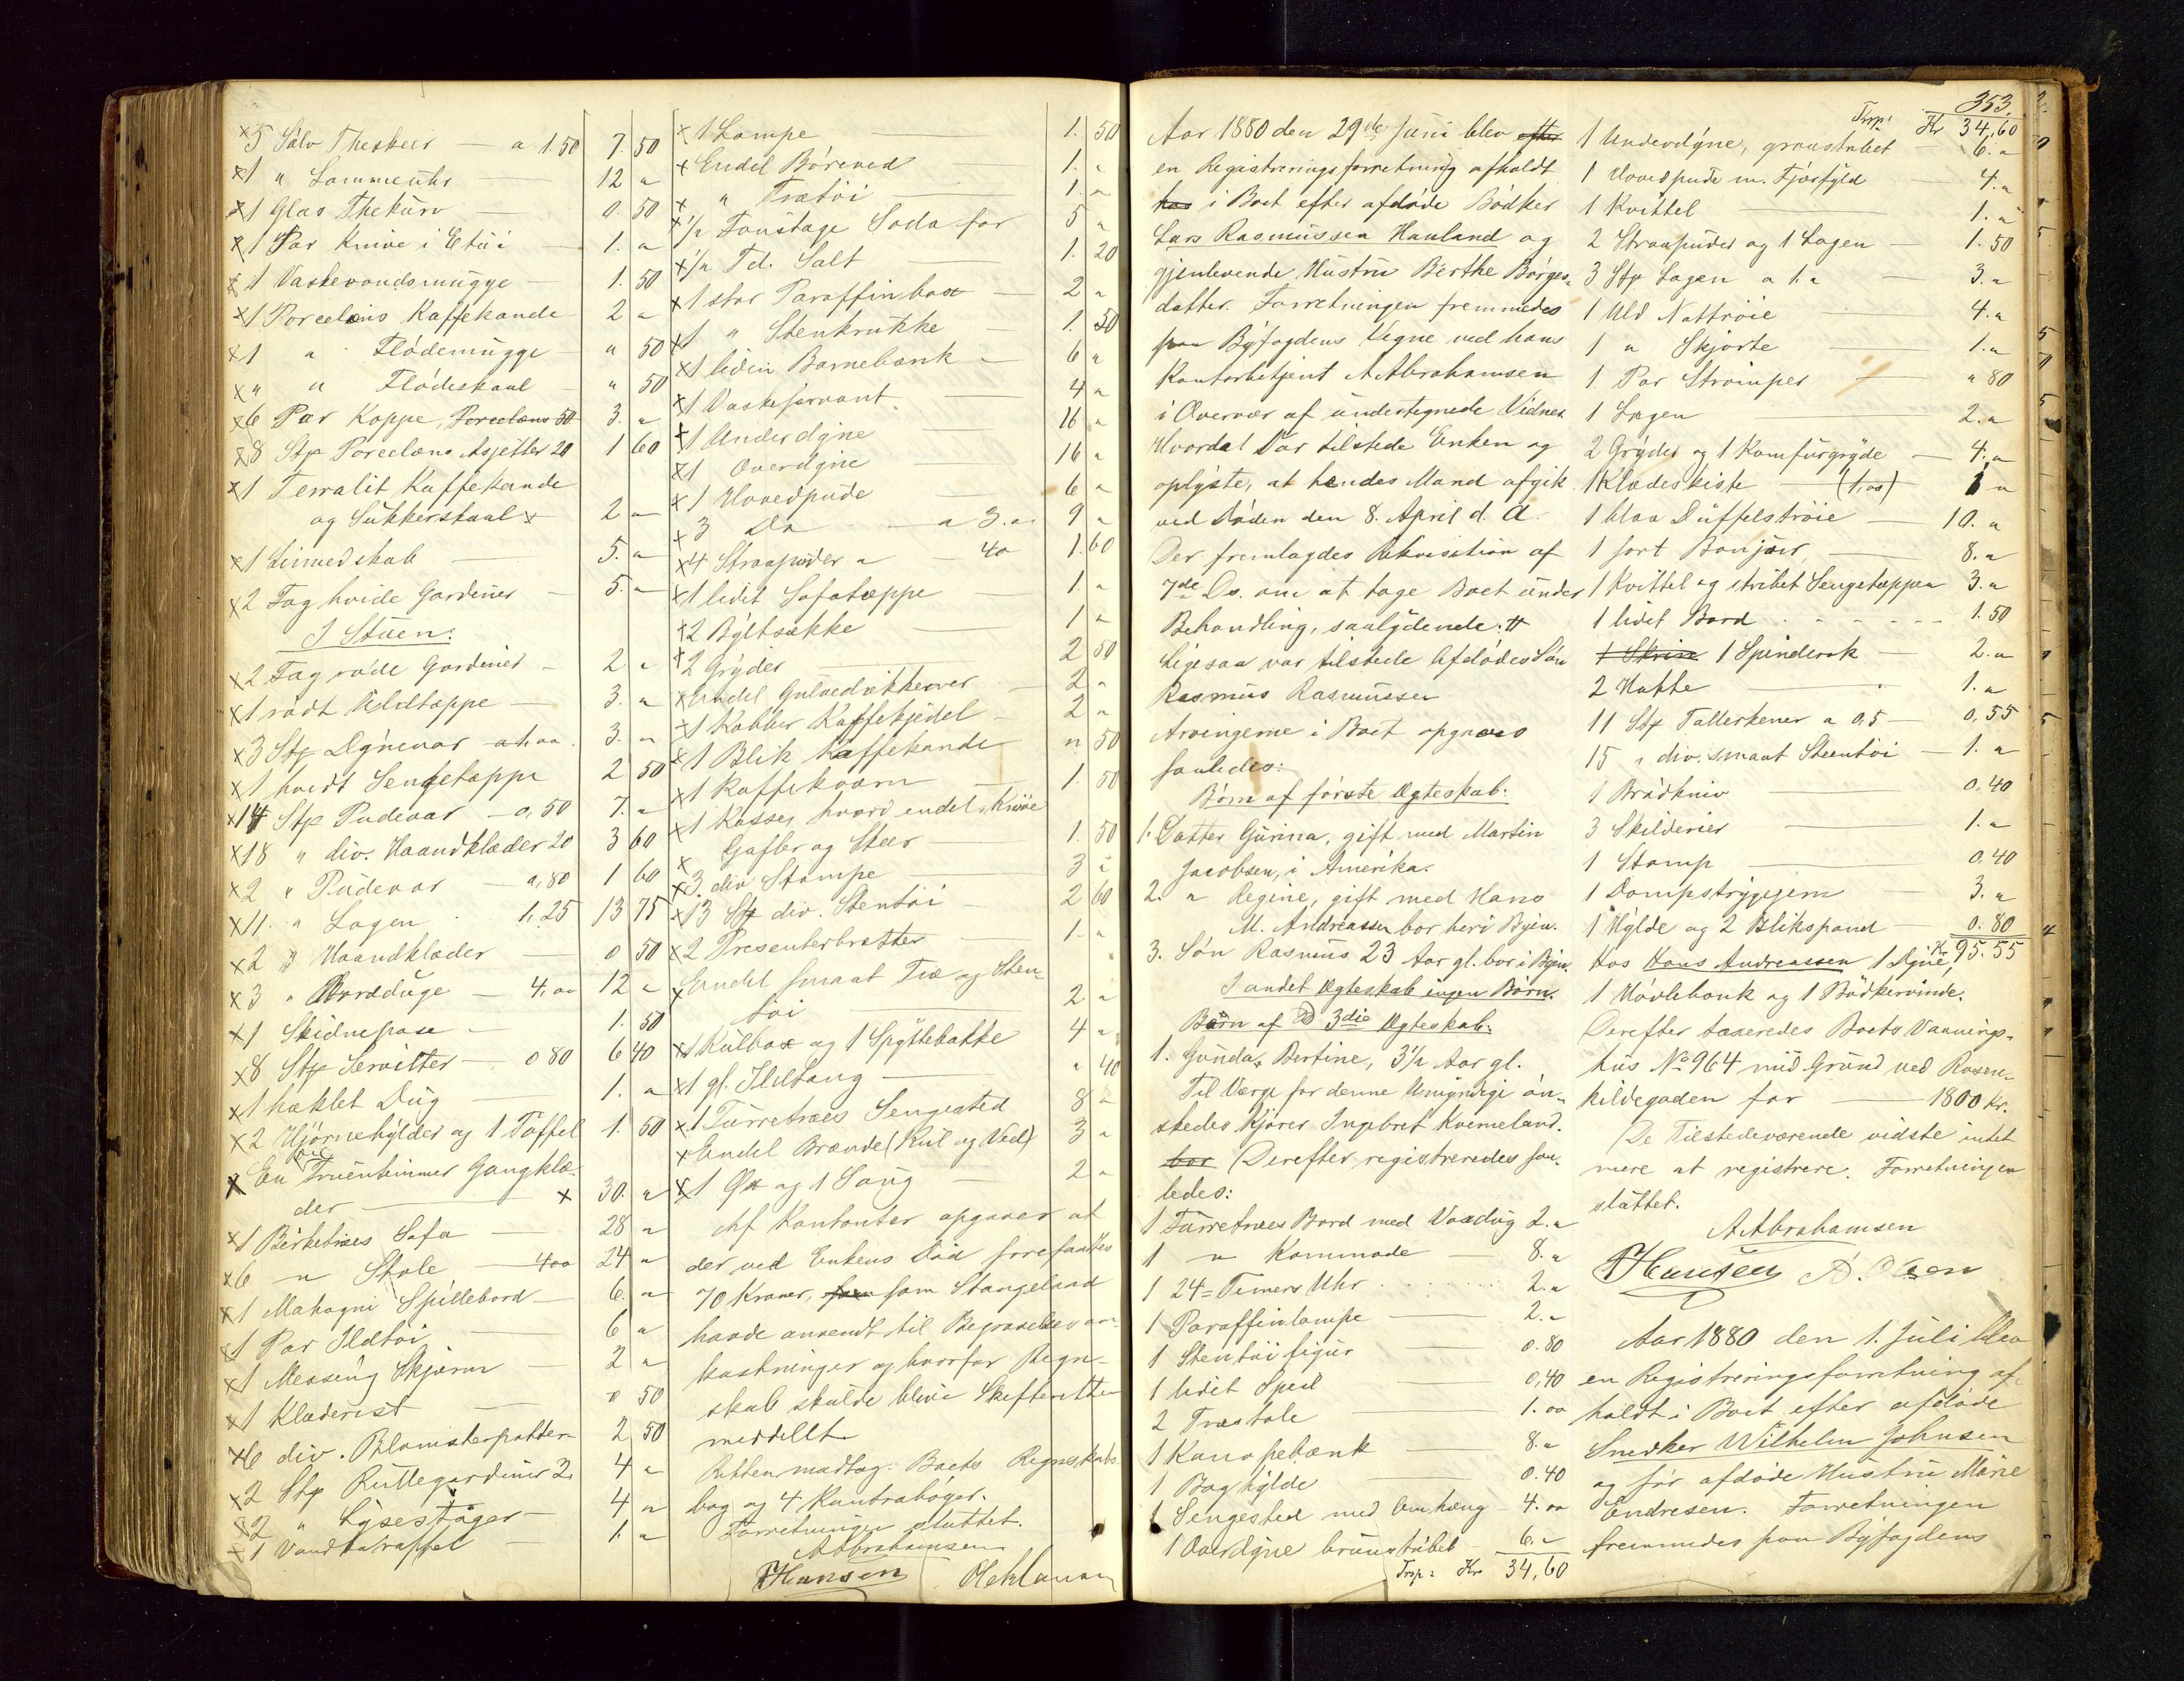 ×5 Sölv Theskeer — a 1.50 7. 50
×1 " Lommeuhr 12 "
×1 Glas Thekurv 0. 50
×1 Par Knive i Etui — 1. "
×1 Vaskevandsmugge — 1. 50
×1 Porcelæns Kaffekande 2 "
×1 " Flödemugge " 50
×" " Flödeskaal " 50
×6 Par Koppe, Porcelæns 50 3. "
×8 Stp Porcelæns Asjetter 20 1 60
×1 Terralit Kaffekande
og Sukkerskaal × 2 "
×1 Linnedskab — 5. "
×2 Fag hvide Gardiner — 5. "
I Stuen:
×2 Fag röde Gardiner — 2 "
×1 rödt Uldtæppe — 3. "
×3 Stp Dynevar — a 1. oo 3. "
×1 hvidt Sengetæppe 2 50
×14 Stp Pudevar — 0,50 7. "
×18 " div. Haandklæder 20 3 60
×2 " Pudevar — a,80 1 60
×11. " Lagen 1,25 13 75
×2 " Haandklæder — 0 50
×3 " Bordduge — 4, oo 12 "
×1 Skidnepose — 1. 50
×8 Stp Servitter — 0 80 6 40
×1 hæklet Dug — 1. "
×2 Hjörnehylder og 1 Taffel 1. 50
× En Fruentimmer Gangklæ-
der — × 30. "
×1 Birketræes Sofa — 28 "
×6 " Stole — 4 oo 24 "
×1 Mahogni Spillebord — 6 "
×1 Par Ildtöi — 6 "
×1 Messing Skjærm — 2 "
×1 Klæderist — 0 50
×6 div. Blomsterpotter — 2 50
×2 Stp Rullegardiner 2. 4 "
×2 " Lysestager — 4 "
×1 Vandkaraffel — 1. "
×1 Lampe — 1. 50
×EndelBöreved — 1. "
× " Trætöi — 1. "
×1/2 Foustage Soda for 5 "
×1/2 Td. Salt — 1. 20
×1 stor Paraffinbox — 2 "
×1 " Stenkrukke — 1. 50
×1 liden Barnebænk — 6 "
×1 Vaskeservant — 4 "
×1 Underdyne — 16 "
×1 Overdyne — 16 "
×1 Hovedpude — 6 "
×3 Do — a 3. oo 9 "
×4 Straapuder a — 40 1. 60
×1 lidet Sofatæppe — 1. "
×2 Byltsække — 1 "
×2 Gryder — 2 50
×Endel Gulvedækkener — 2 "
×1 Kobber Kaffekjedel — 2 "
×1 Blik Kaffekande " 50
×1 Kaffekværn — 1. 50
×1 Kasse, hvori endel Knive
× Gafler og Skeer 1. 50
×3 div Stampe — 3 "
×13 Stp div. Stentöi — 2 60
×2 Presenterbretter — 1. "
×Endel smaat Træ og Sten
töi — 2 "
×1 Kulbox og 1 Spyttebakke 4 "
×1 gl. Ildtang — " 40
×1 Furretræes Sengested 8 "
×Endel Brænde (Kul og Ved) 3 "
×1 Öx og 1 Saug — 2 "
Af Kontanter opgaves at
der ved Enkens Död forefandtes
70 Kroner, som Stangeland
havde anvendt til Begravelsesom-
kostninger og hvorfor Regn-
skab skulde blive Skifteretten
meddelt.
Retten modtog Boets Regnskabs-
bog og 4 Kontrabøger.
Forretningen sluttet.
AAbrahamsen
THansen
353.
Aar 1880 den 29de Juni blev efter
en Registreringsforretning afholdt
hos i Boet efter afdöde Bödker
Lars Rasmussen Hauland og
gjenlevende Hustru Berthe Börges-
datter. Forretningen fremmedes
paa Byfogdens Vegne ved hans
Kontorbetjent AAbrahamsen
i Overvær af undertegnede Vidner.
Hvorda! Var tilstede Enken og
oplyste, at hendes Mand afgik
ved Döden den 8. April d. A.
Der fremlagdes Rekvisition af
7de Ds. om at tage Boet under
Behandling, saalydende: #
Ligesaa var tilstede Afdödes Sön
Rasmus Rasmussen
Arvingerne i Boet opgaves
saaledes:
Börn af förste Ægteskab:
1. Datter Gurina, gift med Martin
Jacobsen, i Amerika.
2. " Regine, gift med Hans
M. Andreassen bor heri Byen.
3. Sön Rasmus 23 Aar gl. bor i Byen.
I andet Ægteskab ingen Börn.
Barn af 3die Ægteskab:
1. Gunda Bertine, 3½ Aar gl.
Til Værge for denne Umyndige ön-
skedes Kjörer Ingebret Kverneland.
bor Derefter registreredes saa-
ledes:
1 Furretræes Bord med Voxdug 2. "
1 " Kommode — 8. "
1 24-Timers Uhr 2. "
1 Paraffinlampe — 2. "
1 Stentöi figur — 0. 80
1 lidet Speil — 0,40
2 Træstole — 1. oo
1 Kanapebænk — 8. "
1 Boghylde — 0.40
1 Sengested med Omhæng — 4. oo
1 Overdyne brunstribet — 6. "
Trsp: Kr 34,60
Trsp! Kr 34,60
1 Underdyne, graastribet — 6. "
1 Hovedpude m. Fjærfyld — 4. "
1 Kvittel — 1. "
2 Straapuder og 1 Lagen — 1. 50
3 Stp Lagen a 1. " — 3. "
1 Uld Nattröie 4. "
1 " Skjorte — 1. "
1. Par Strömper — " 80
1 Lagen 2. "
2 Gryder og 1 Komfurgryde — 4. "
1 Klædeskiste — (1,00) 1 "
1 blaa Düffelströie — 10. "
1 sort Bonjour — 8. "
1 Kvittel og stribet Sengetæppe 3. "
1 lidet Bord 1. 50
1 Skrin 1 Spinderok — 2. "
2 Hatte 1. "
11 Stp Tallerkener a 0,5 — 0,55
15 " div. smaat Steentöi — 1. "
1 Brödkniv — 0,40
3 Skilderier — 1. "
1 Stamp — 0.40
1 Dampstrygejern — 3. "
1 Hylde og 2 Blikspand — 0. 80
Kr 95.55
Hos Hans Andreassen 1 Dyne,
1 Hövlebænk og 1 Bödkervinde.
Derefter taxeredes Boets Vaanings-
hus No 964 med Grund ved Rosen-
kildegaden for — 1800 Kr.
De Tilstedeværende vidste intet
mere at registrere. Forretningen
sluttet.
AAbrahamsen
THansen A. Olsen
Aar 1880 den 1. Juli blev
en Registreringsforretning af-
holdt i Boet efter afdöde
Snedker Wilhelm Johnsen
og för afdöde Hustru Marie
Endresen. Forretningen
fremmedes paa Byfogdens